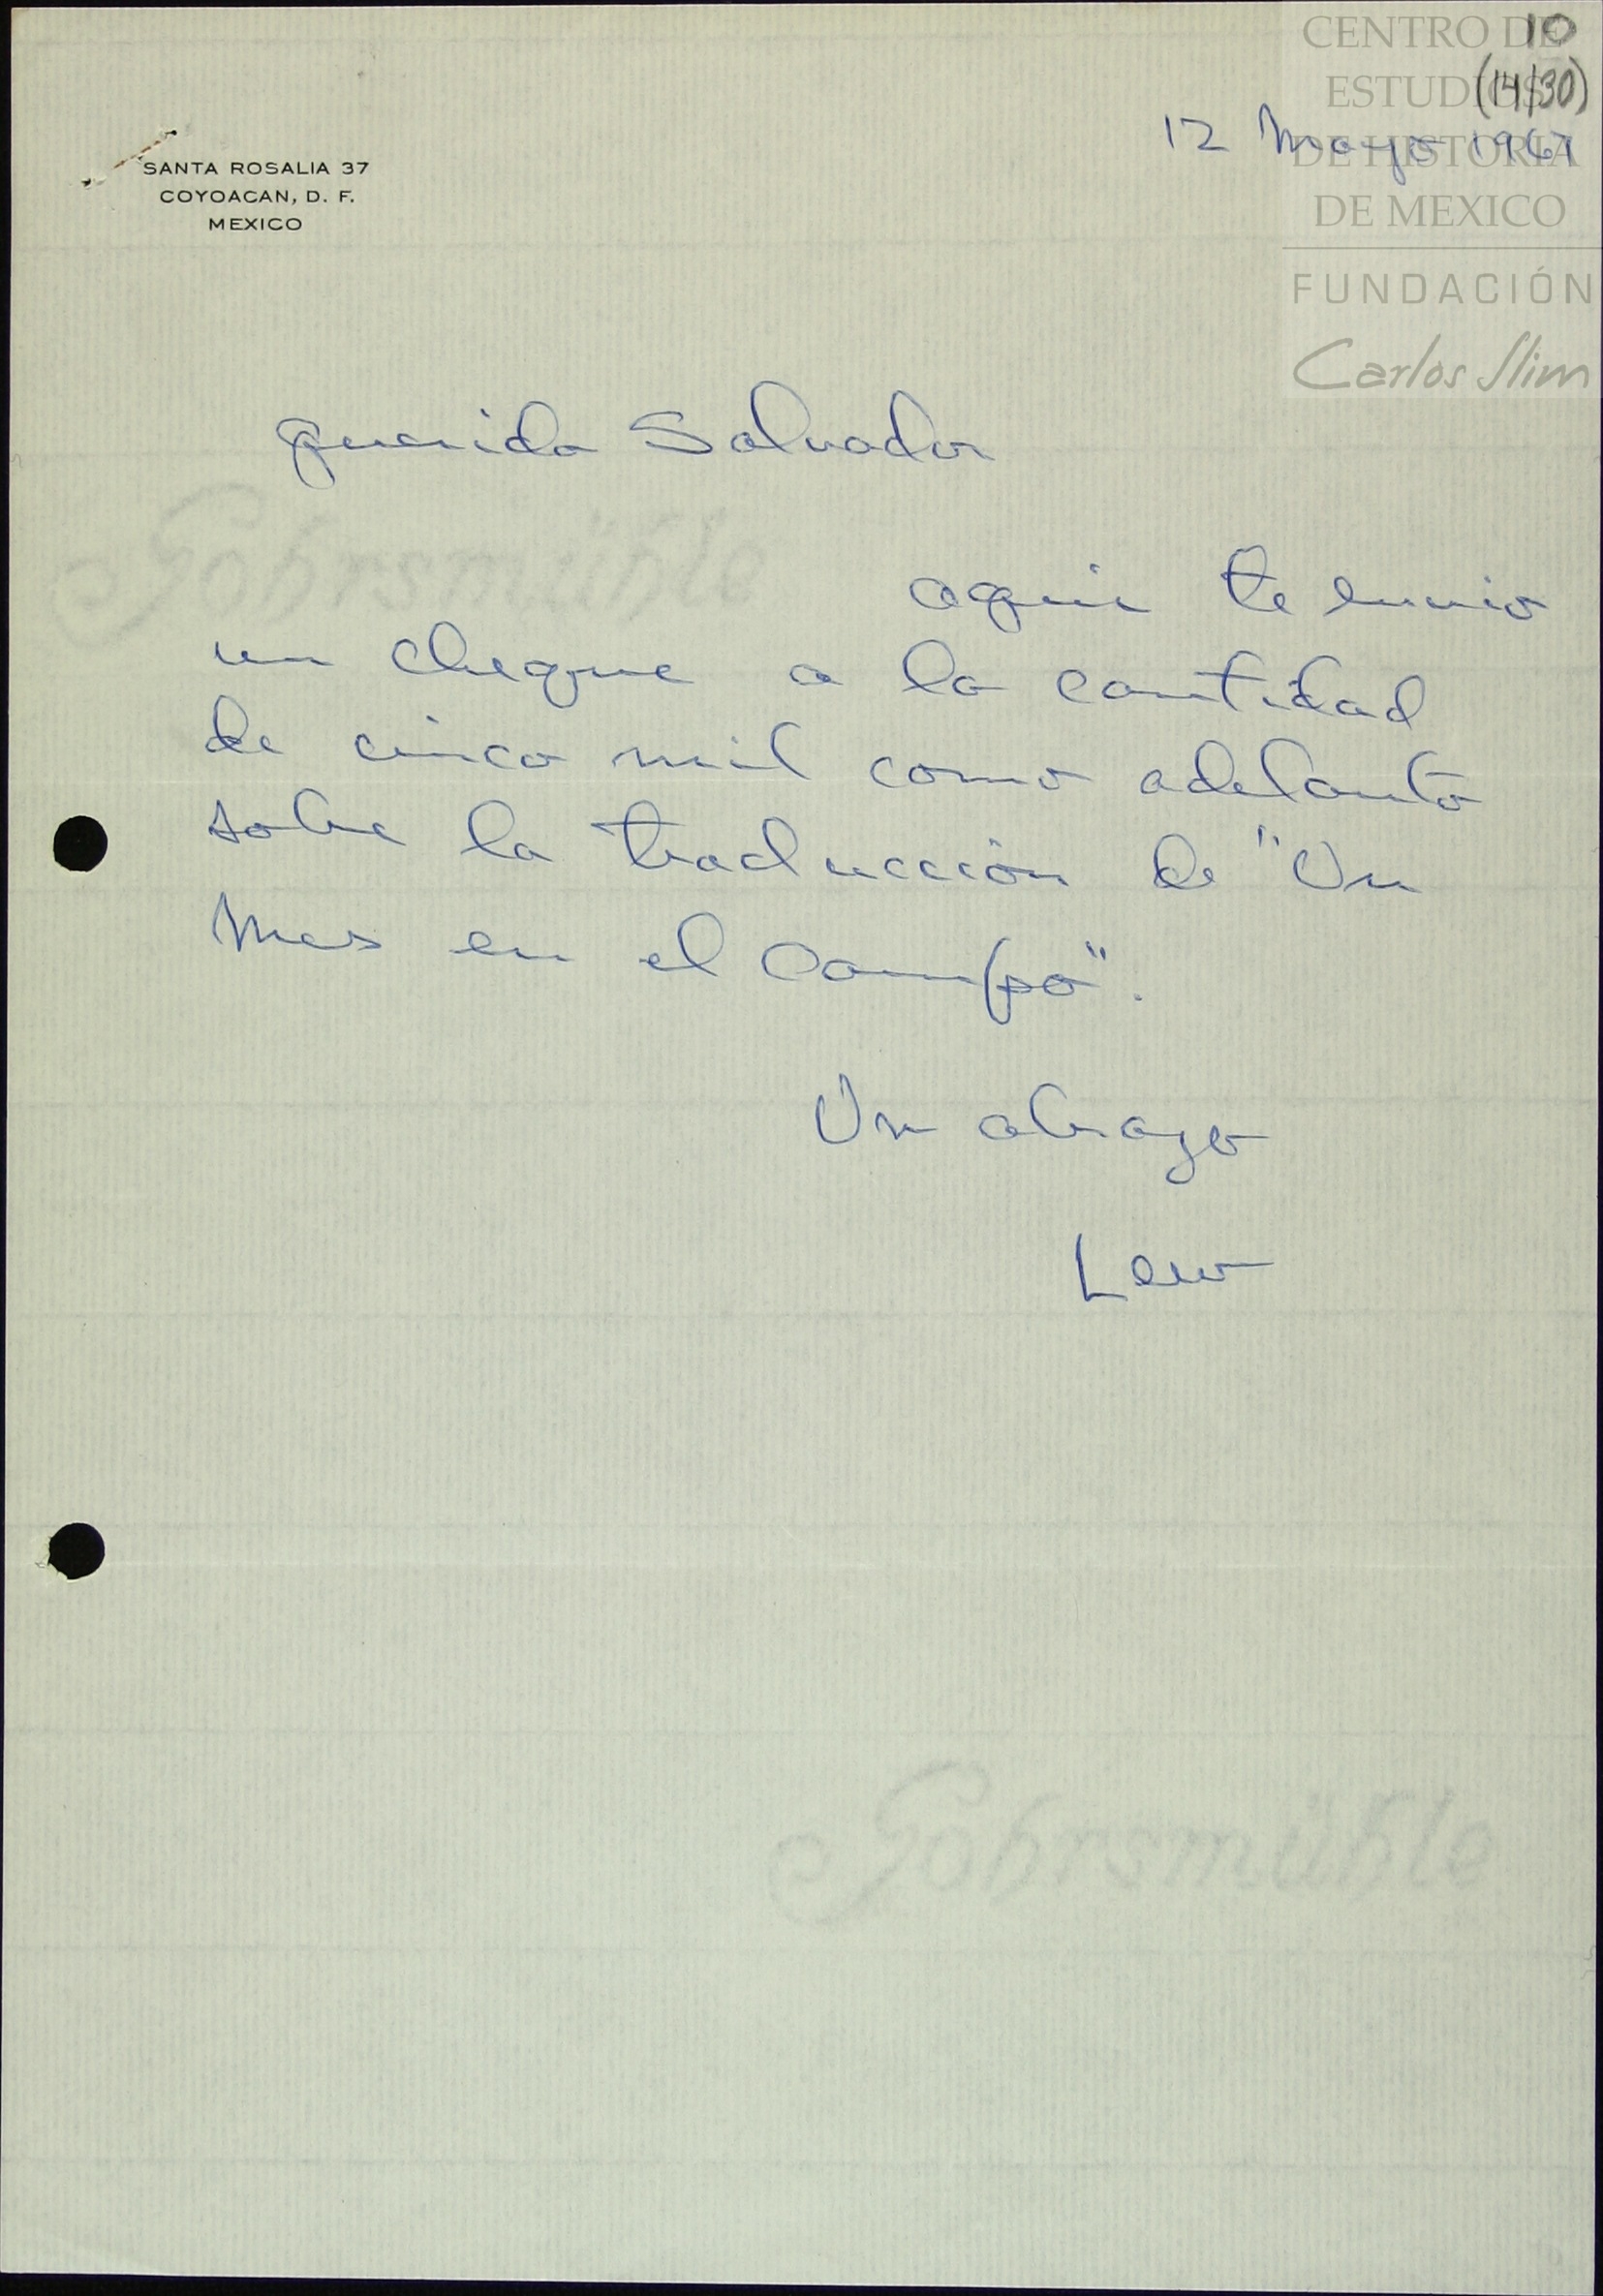 10
(14/30)
CENTRO DE
ESTUDIOS
DE HISTORIA
DE MEXICO
FUNDACIÓN
Carlos Slim
12 Mayo 1967
SANTA ROSALIA 37
COYOACAN, D. F.
MEXICO
querido Salvador
aqui te envio
un cheque a la cantidad
de cinco mil como adelanto
sobre la traducción de "Un
Mes en el Campo".
Un abrazo
Lew
Gohrsmühle
Gohrsmühle